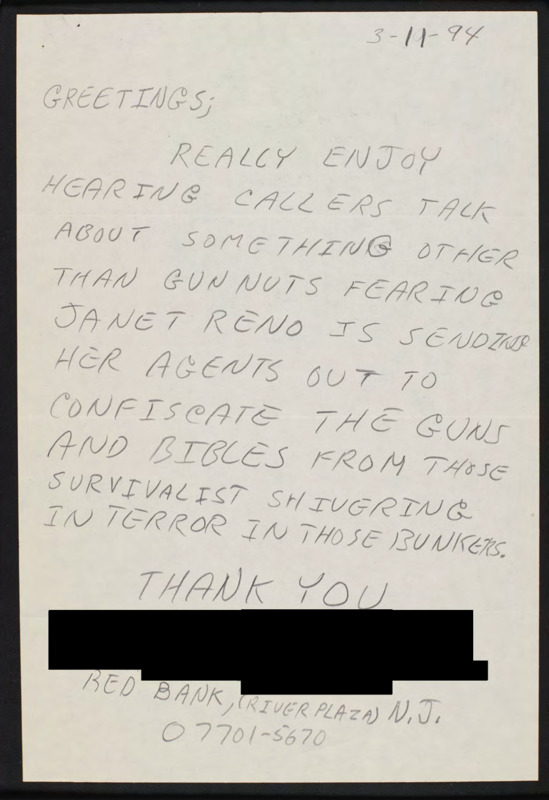 3-11-94
GREETINGS;
REALLY ENJOY
HEARING CALLERS TALK
ABOUT SOMETHING OTHER
THAN GUN NUTS FEARING
JANET RENO IS SENDING
HER AGENTS OUT TO
CONFISCATE THE GUNS
AND BIBLES FROM THOSE
SURVIVALIST SHIVERING
IN TERROR IN THOSE BUNKERS.
THANK YOU
RED BANK, (RIVER PLAZA) N.J.
07701-5670